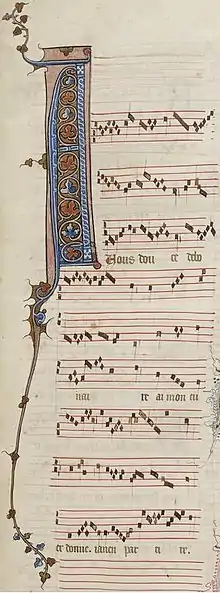 A vous dou ce debo
nai re ai mon cu
er donne. ia nen par ti re.